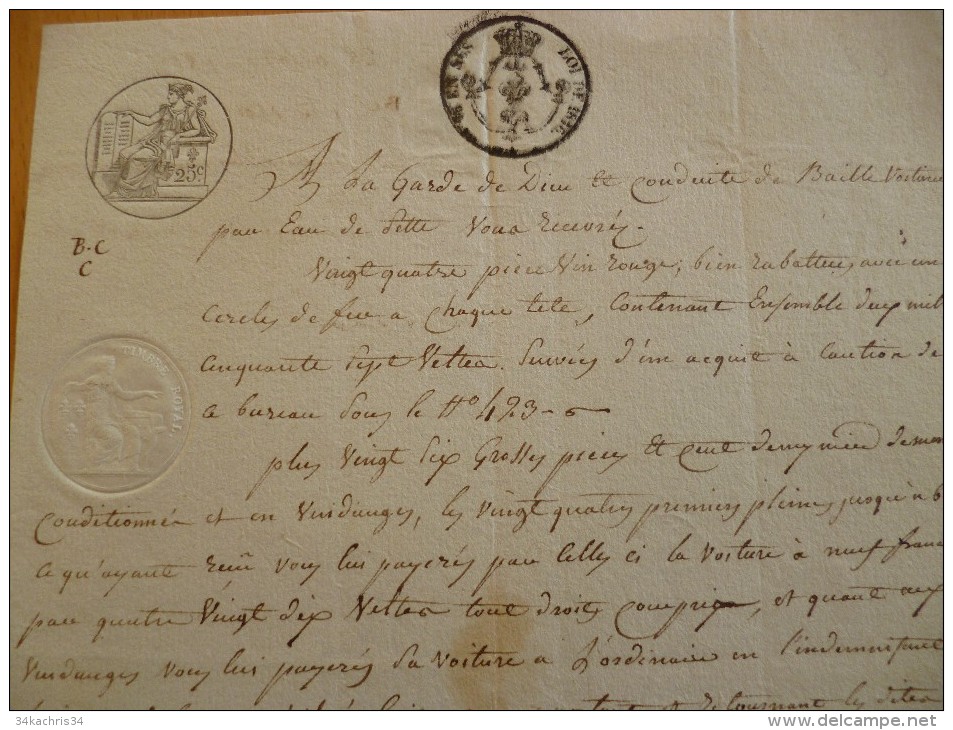 EN SUS
LOI DE 1816.
25c
A La Garde de Dieu et conduite de Baille voiturier
par Eau de Sette vous recevrés.
B.C
C
Vingt quatre piece Vin rouge, bien rabattues avec un
Cercles de fer a chaque tete, Contenant Ensemble deux mil
Cinquante Sept Veltes. Suivies d'un acquit à Caution de
ce bureau Sous le No 423
TIMBRE ROYAL
plus Vingt Six Grosses pieces et Cent
Conditionnée et en Vuidanges, les Vingt quatre premiers pleines jusqu'a
Ce qu'ayant reçu vous lui payerés par Celles ci la voiture à neuf francs
par quatre Vingt dix Veltes tout droits compris, et quant aux
Vuidanges vous lui payerés Sa voiture a L'ordinaire en l'indemnisant
et retournant les dites
34kachris34
http://www.delcampe.net